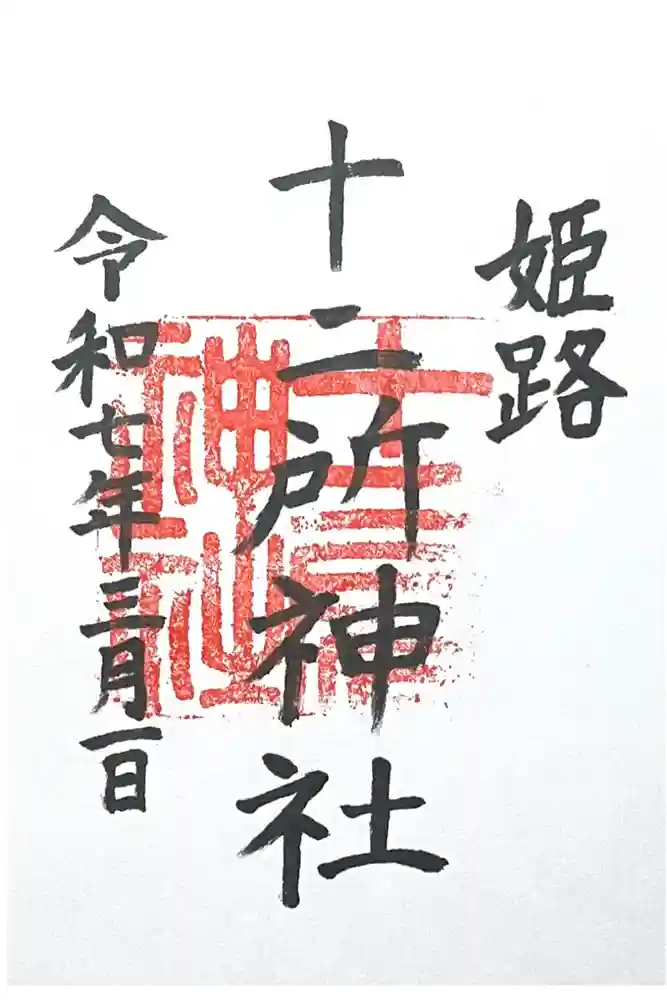 姫路
十二所神社
令和七年三月一日
十二所神社